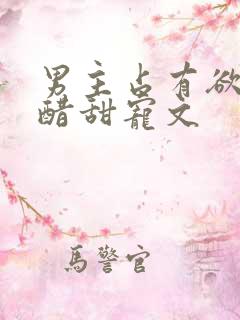 男主占有欲
醋甜寵文
馬警官